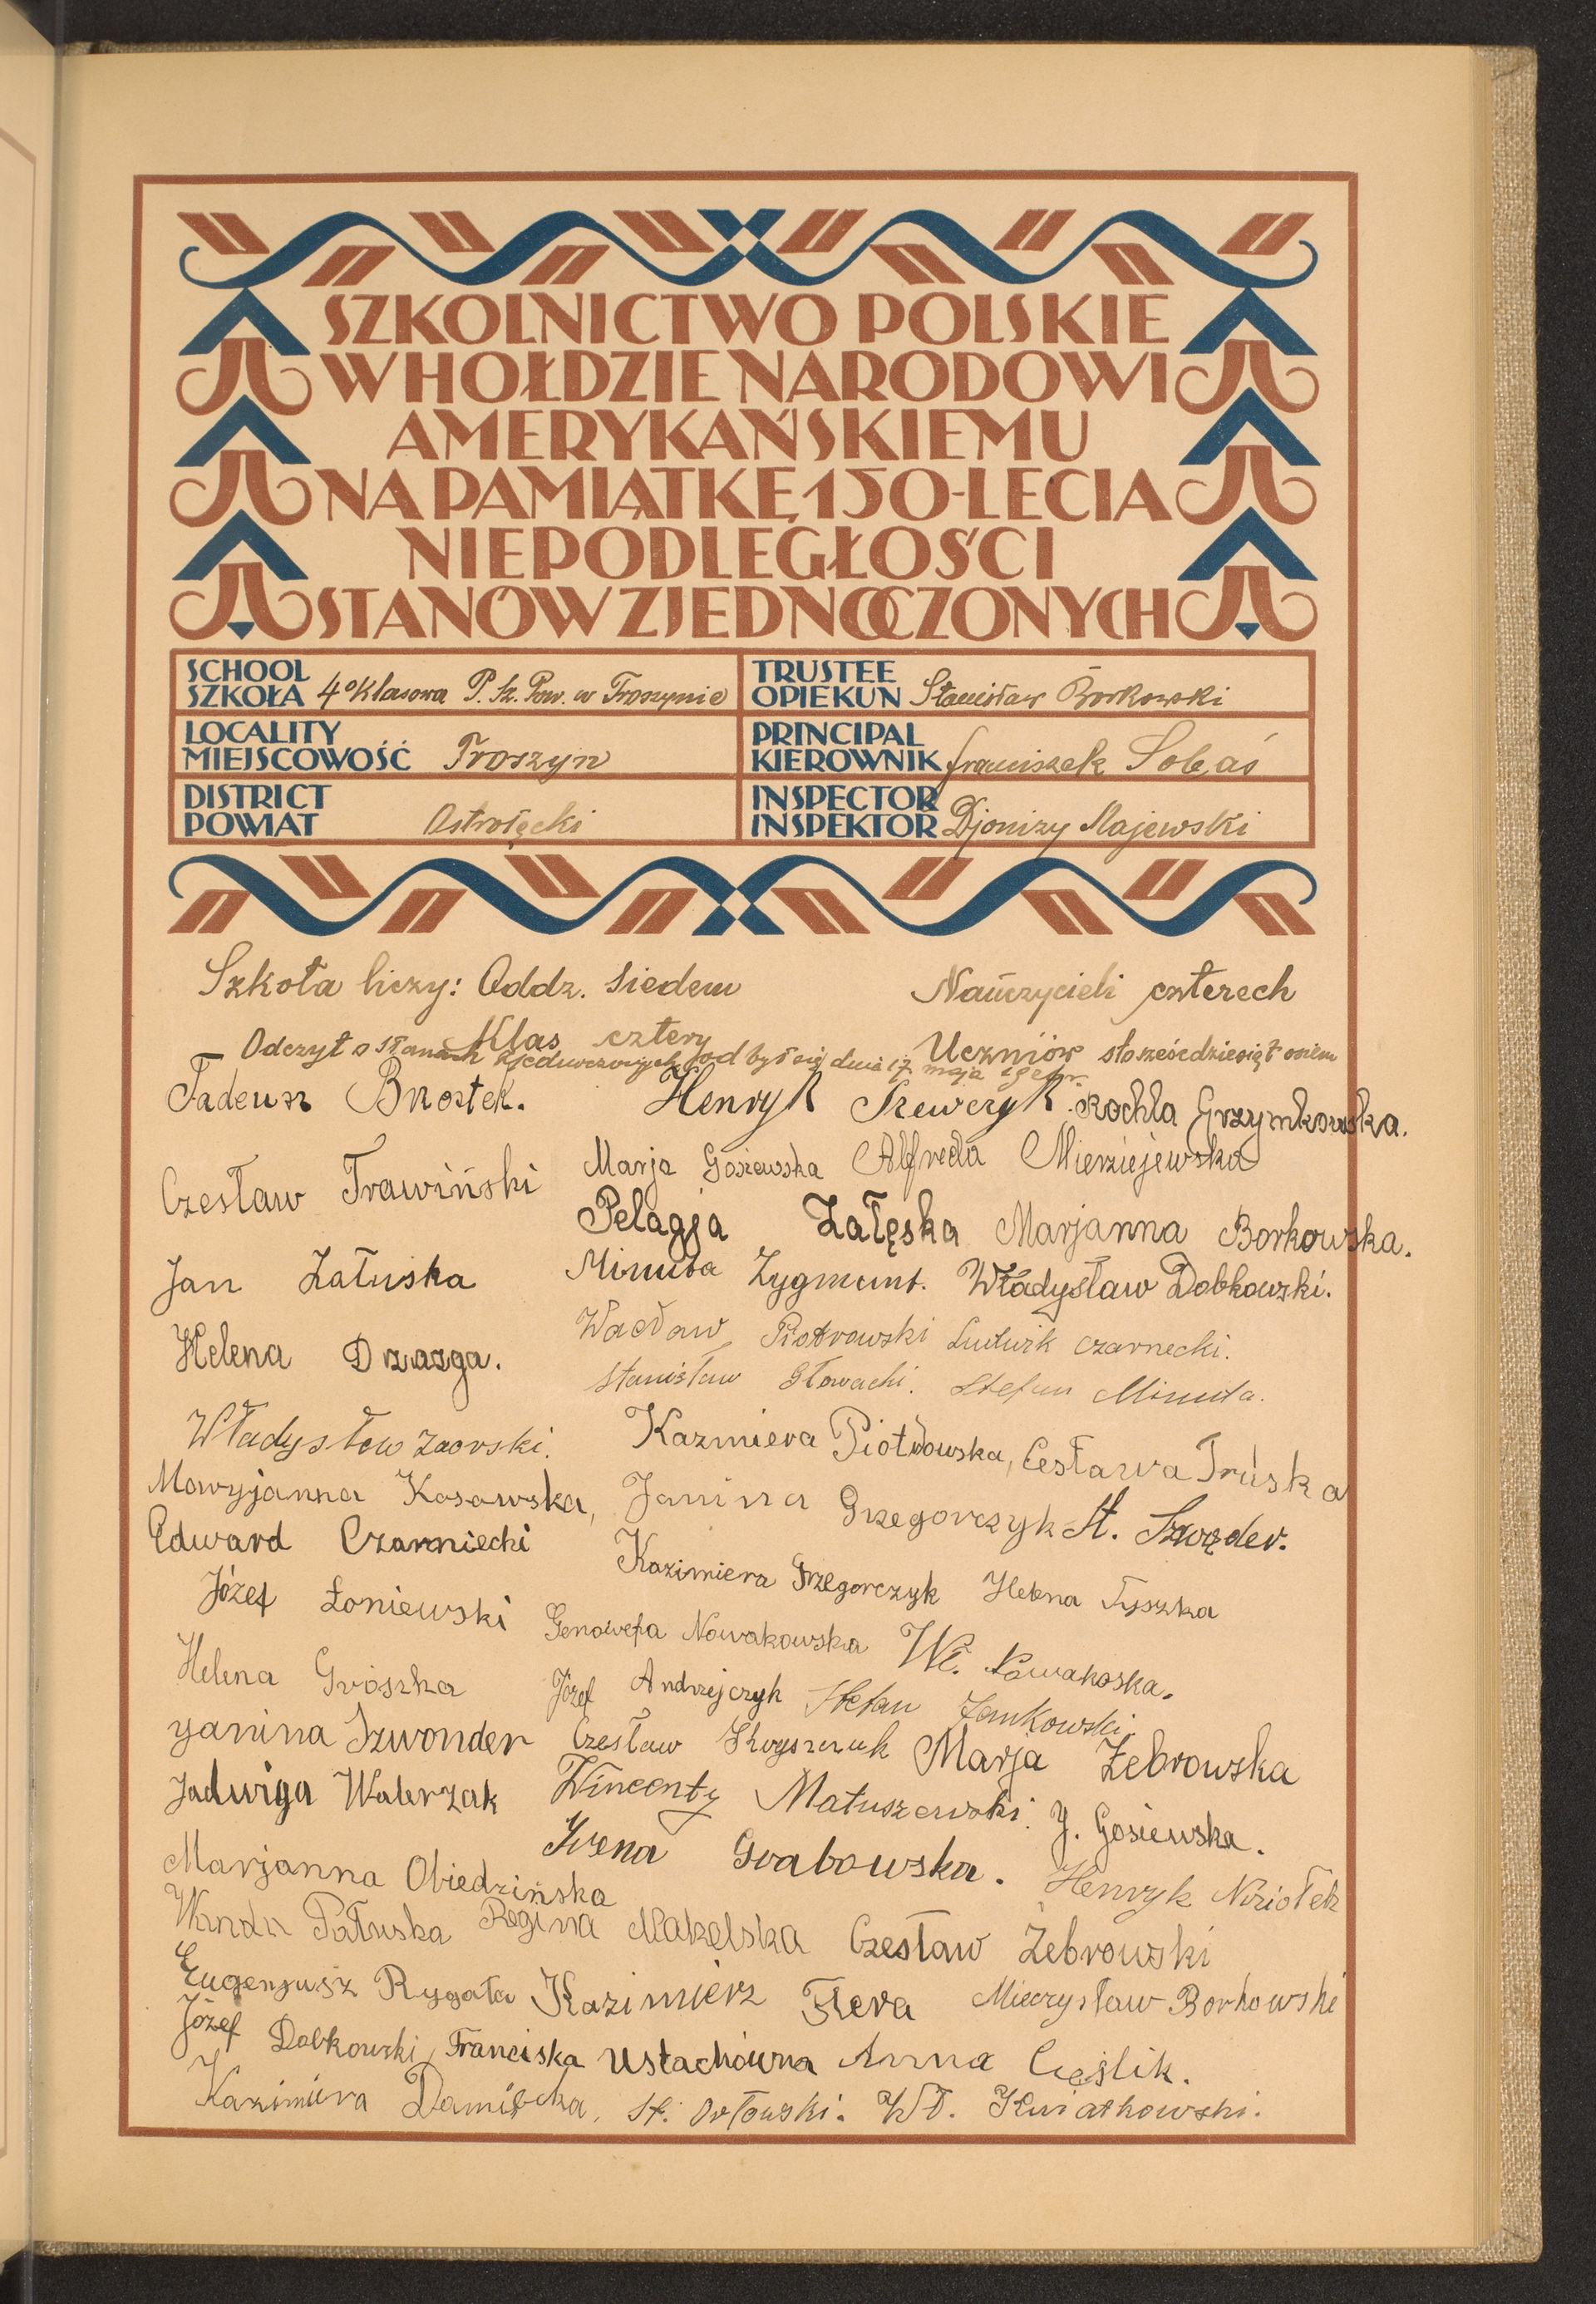 SZKOLNICTWO POLSKIE
W HOŁDZIE NARODOWI
AMERYKAŃSKIEMU
NA PAMIĄTKĘ 150-LECIA
NIEPODLEGŁOŚCI
STANÓW ZJEDNOCZONYCH
SCHOOL
SZKOŁA 4º Klasowa P. Sz. Pow. w Troszynie
TRUSTEE
OPIEKUN Stanisław Borkowski
LOCALITY
MIEJSCOWOŚĆ Troszyn
PRINCIPAL
KIEROWNIK Franciszek Sobaś
DISTRICT
POWIAT Ostrołęcki
INSPECTOR
INSPEKTOR Djonizy Majewski
Szkoła liczy: Oddz. siedem Nauczycieli czterech
Klas cztery Uczniów sto sześćdziesiąt osiem
Odczyt o Stanach Zjednoczonych odbył się dnia 17 maja
Tadeusz Brostek. Henryk Szewczyk. Rochla Grzymkowska.
Czesław Trawiński Marja Gosiewska Alfreda Mierziejewska
Pelagja Załęska Marjanna Borkowska.
Jan Załuska Minuta Zygmunt. Władysław Dobkowski.
Helena Drzazga. Wacław Piotrowski Ludwik Czarnecki.
Stanisław Głowacki. Stefan Minuta.
Władysław Zaorski. Kazmiera Piotrowska, Cesława Truska
Maryjanna Kosowska, Janina Grzegorczyk St. Szwęder.
Edward Czarniecki Kazimiera Grzegorczyk Helena Tyszka
Józef Łoniewski Genowefa Nowakowska Wł. Nowakoska.
Helena Groszka Józef Andrzejczyk Stefan Jankowski.
Yanina Szwonder Czesław Krysztuk Marja Żebrowska
Jadwiga Walerzak Wincenty Matuszewski. J. Gosiewska.
Irena Grabowska. Henryk Niziołek
Marjanna Obiedzińska
Wanda Pałuska Regina Makelska Czesław Żebrowski
Eugenjusz Rygała Kazimierz Flera Mieczysław Borkowski
Józef Dobkowski, Franciska Ustachówna Anna Cieślik.
Kazimiera Damięcka, St. Orłowski. Wł. Kwiatkowski.